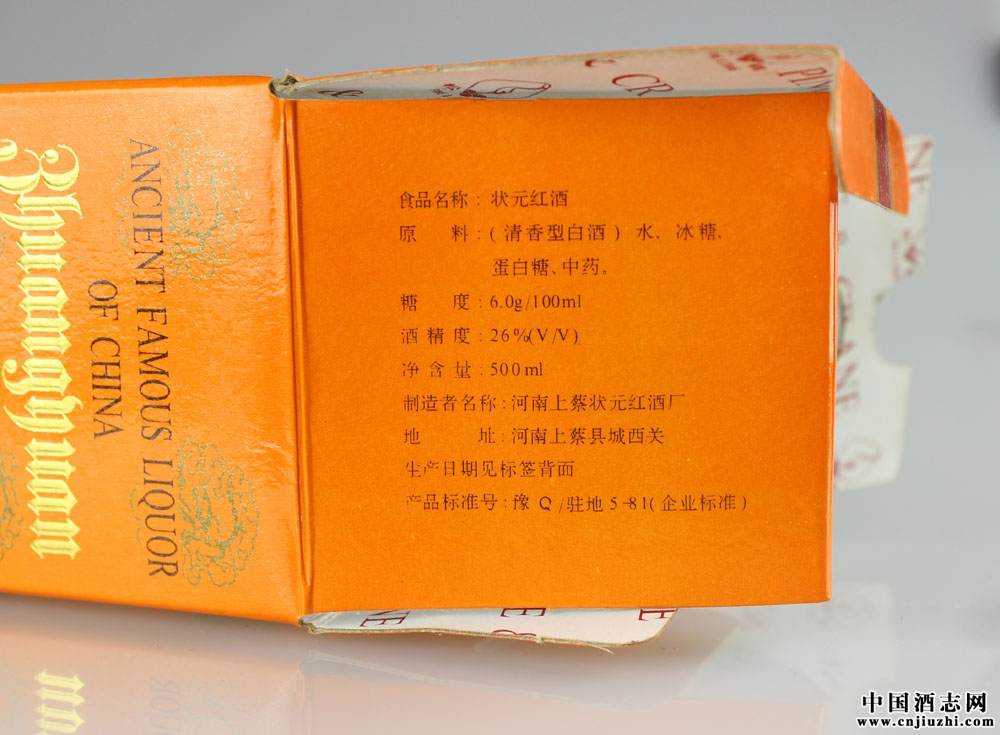 Zhuangyuan
ANCIENT FAMOUS LIQUOR
OF CHINA
食品名称：状元红酒
原 料：(清香型白酒) 水、冰糖、
蛋白糖、中药。
糖 度：6.0g/100ml
酒精度：26%(V/V)
净含量：500ml
制造者名称：河南上蔡状元红酒厂
地 址：河南上蔡县城西关
生产日期见标签背面
产品标准号：豫Q/驻地5-81(企业标准)
中国酒志网
www.cnjiuzhi.com